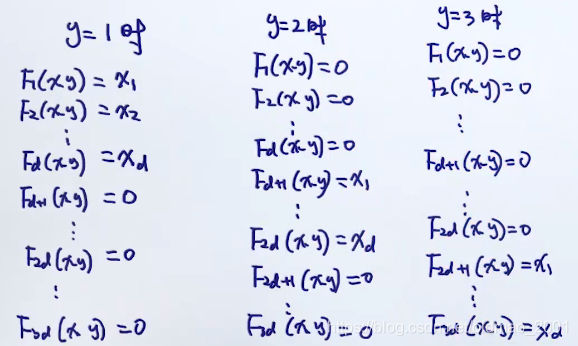 y=1时
F1(x,y)=x1
F2(x,y)=x2
⋮
Fd(x,y)=xd
Fd+1(x,y)=0
⋮
F2d(x,y)=0
⋮
F3d(x,y)=0
y=2时
F1(x,y)=0
F2(x,y)=0
⋮
Fd(x,y)=0
Fd+1(x,y)=x1
⋮
F2d(x,y)=xd
F2d+1(x,y)=0
⋮
F3d(x,y)=0
y=3时
F1(x,y)=0
F2(x,y)=0
⋮
Fd+1(x,y)=0
⋮
F2d(x,y)=0
F2d+1(x,y)=x1
⋮
F3d(x,y)=xd